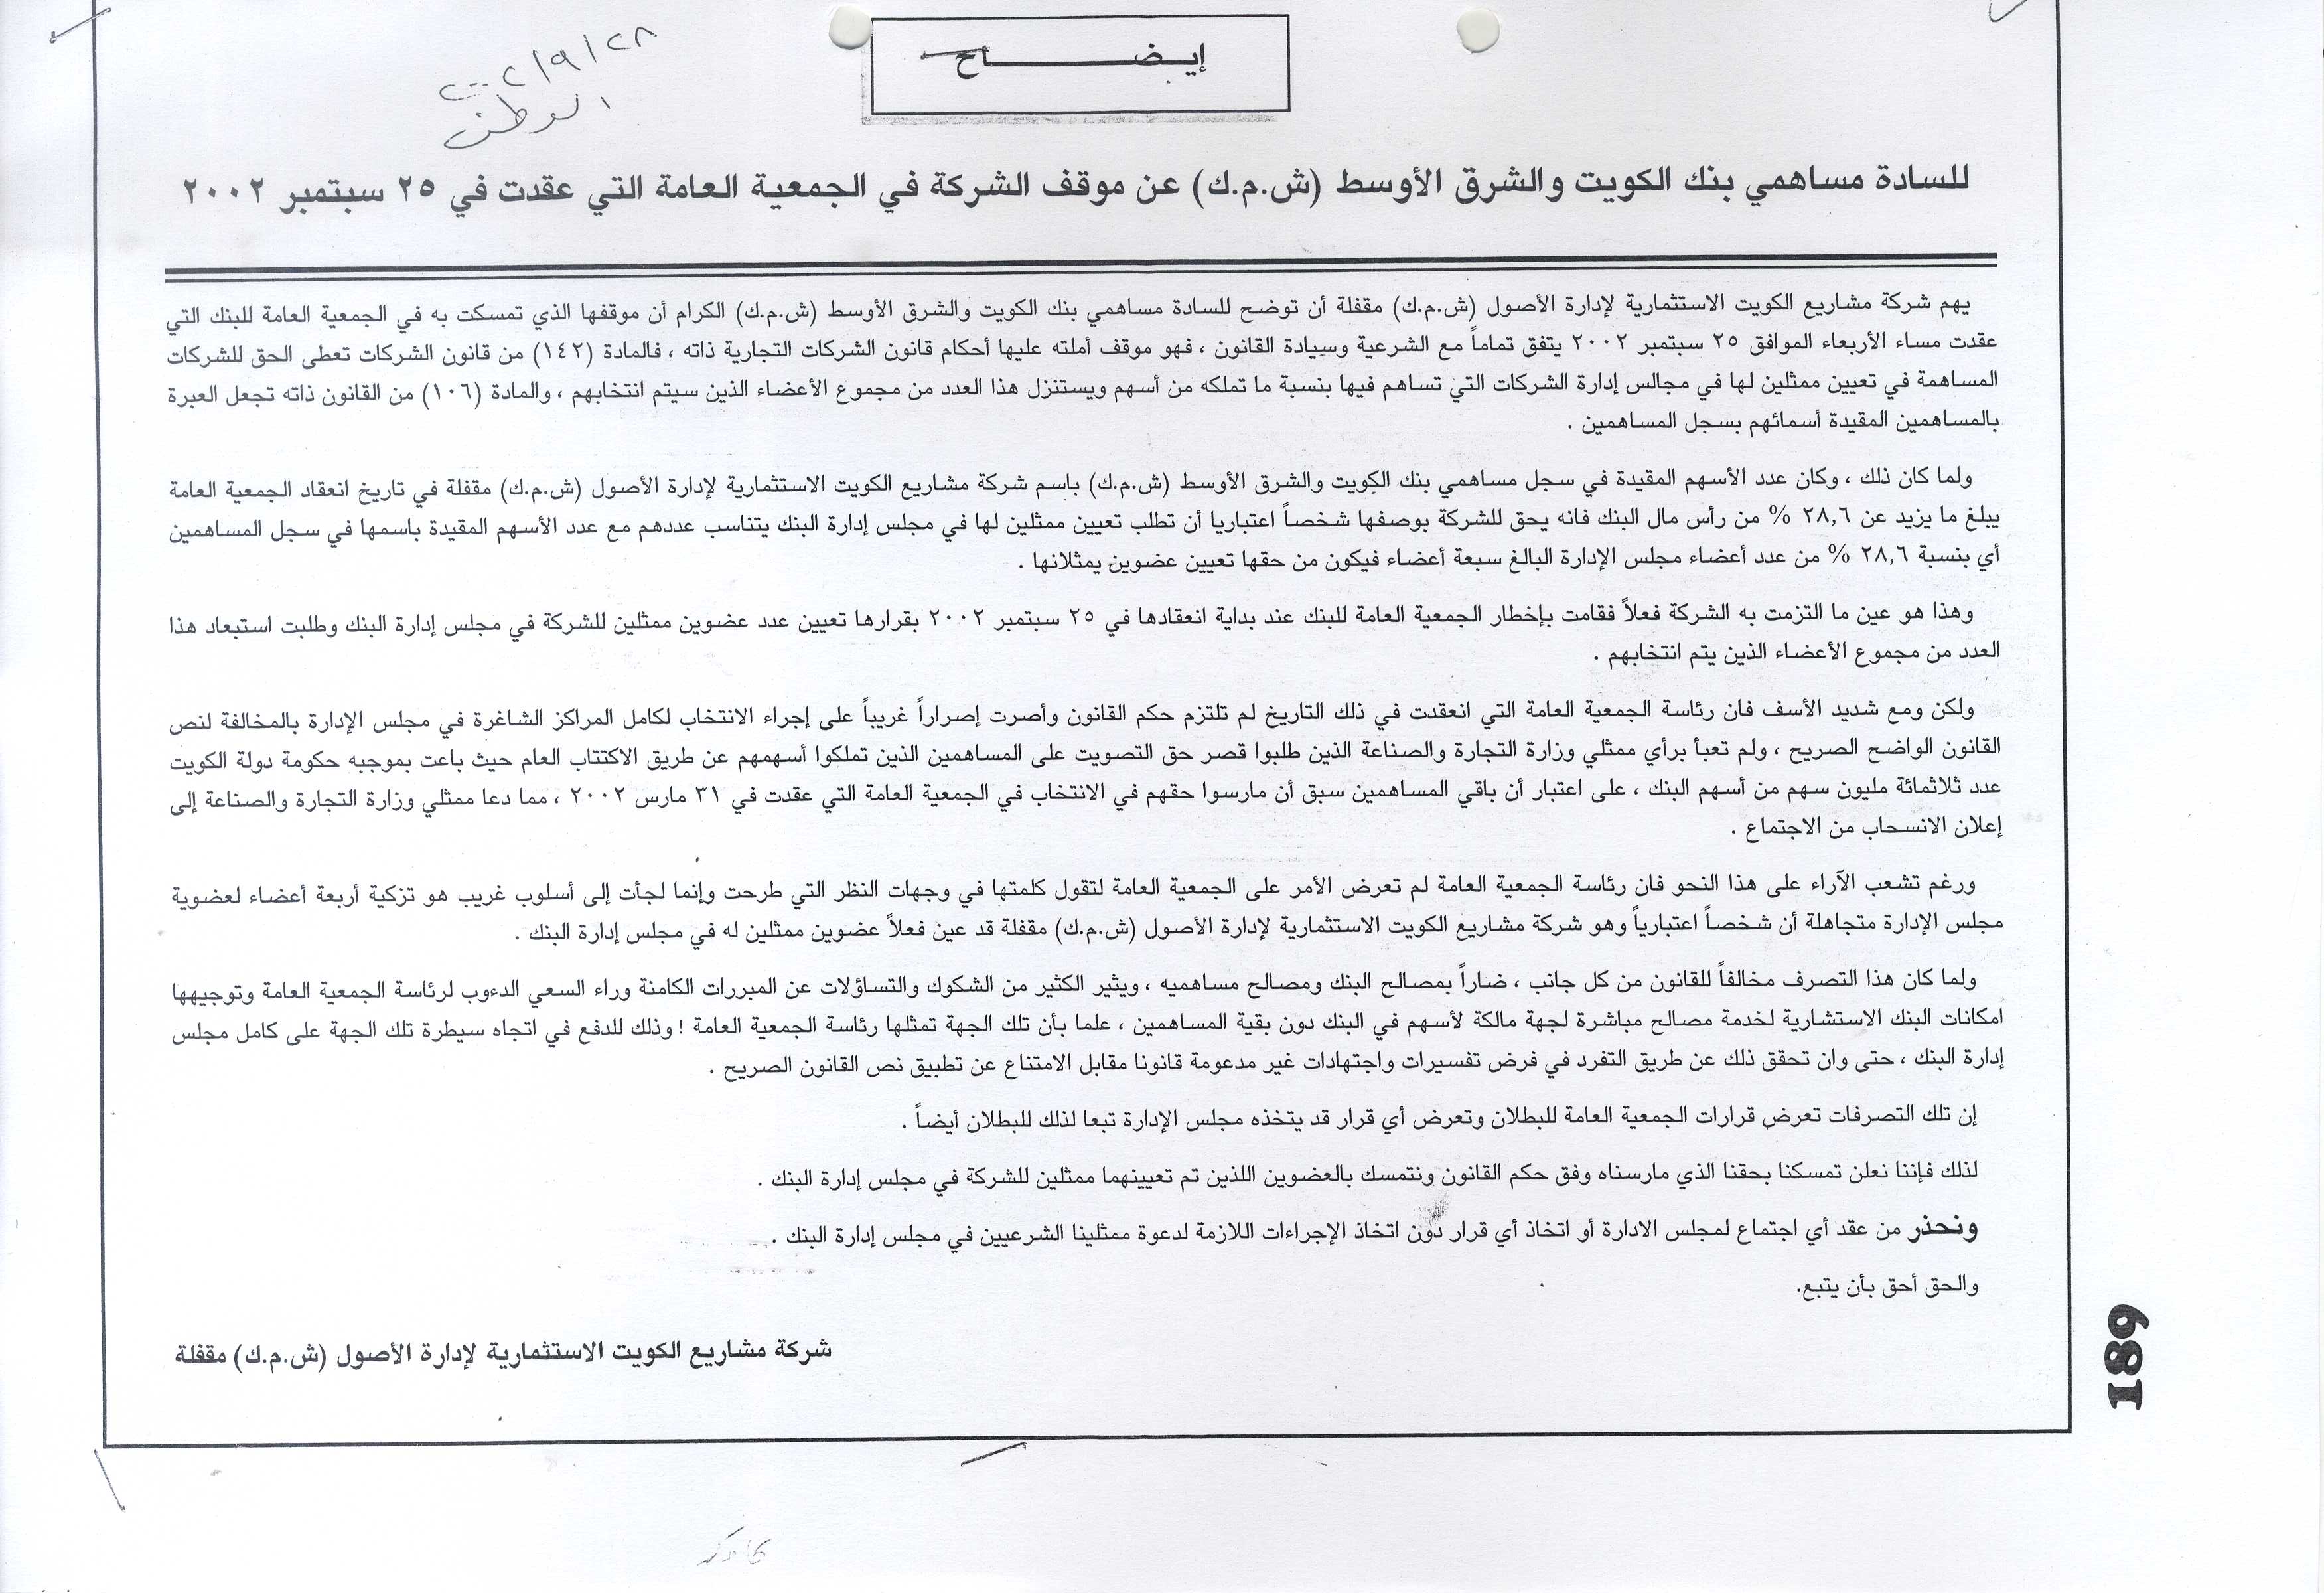 ٢٠٠٢/٩/٢٨
الوطن
إيضاح
للسادة مساهمي بنك الكويت والشرق الأوسط (ش.م.ك) عن موقف الشركة في الجمعية العامة التي عقدت في ٢٥ سبتمبر ٢٠٠٢
يهم شركة مشاريع الكويت الاستثمارية لإدارة الأصول (ش.م.ك) مقفلة أن توضح للسادة مساهمي بنك الكويت والشرق الأوسط (ش.م.ك) الكرام أن موقفها الذي تمسكت به في الجمعية العامة للبنك التي
عقدت مساء الأربعاء الموافق ٢٥ سبتمبر ٢٠٠٢ يتفق تماماً مع الشرعية وسيادة القانون ، فهو موقف أملته عليها أحكام قانون الشركات التجارية ذاته ، فالمادة (١٤٢) من قانون الشركات تعطى الحق للشركات
المساهمة في تعيين ممثلين لها في مجالس إدارة الشركات التي تساهم فيها بنسبة ما تملكه من أسهم ويستنزل هذا العدد من مجموع الأعضاء الذين سيتم انتخابهم ، والمادة (١٠٦) من القانون ذاته تجعل العبرة
بالمساهمين المقيدة أسمائهم بسجل المساهمين .
ولما كان ذلك ، وكان عدد الأسهم المقيدة في سجل مساهمي بنك الكويت والشرق الأوسط (ش.م.ك) باسم شركة مشاريع الكويت الاستثمارية لإدارة الأصول (ش.م.ك) مقفلة في تاريخ انعقاد الجمعية العامة
يبلغ ما يزيد عن ٢٨,٦ % من رأس مال البنك فانه يحق للشركة بوصفها شخصاً اعتباريا أن تطلب تعيين ممثلين لها في مجلس إدارة البنك يتناسب عددهم مع عدد الأسهم المقيدة باسمها في سجل المساهمين
أي بنسبة ٢٨,٦ % من عدد أعضاء مجلس الإدارة البالغ سبعة أعضاء فيكون من حقها تعيين عضوين يمثلانها .
وهذا هو عين ما التزمت به الشركة فعلاً فقامت بإخطار الجمعية العامة للبنك عند بداية انعقادها في ٢٥ سبتمبر ٢٠٠٢ بقرارها تعيين عدد عضوين ممثلين للشركة في مجلس إدارة البنك وطلبت استبعاد هذا
العدد من مجموع الأعضاء الذين يتم انتخابهم .
ولكن ومع شديد الأسف فان رئاسة الجمعية العامة التي انعقدت في ذلك التاريخ لم تلتزم حكم القانون وأصرت إصراراً غريباً على إجراء الانتخاب لكامل المراكز الشاغرة في مجلس الإدارة بالمخالفة لنص
القانون الواضح الصريح ، ولم تعبأ برأي ممثلي وزارة التجارة والصناعة الذين طلبوا قصر حق التصويت على المساهمين الذين تملكوا أسهمهم عن طريق الاكتتاب العام حيث باعت بموجبه حكومة دولة الكويت
عدد ثلاثمائة مليون سهم من أسهم البنك ، على اعتبار أن باقي المساهمين سبق أن مارسوا حقهم في الانتخاب في الجمعية العامة التي عقدت في ٣١ مارس ٢٠٠٢ ، مما دعا ممثلي وزارة التجارة والصناعة إلى
إعلان الانسحاب من الاجتماع .
ورغم تشعب الآراء على هذا النحو فان رئاسة الجمعية العامة لم تعرض الأمر على الجمعية العامة لتقول كلمتها في وجهات النظر التي طرحت وإنما لجأت إلى أسلوب غريب هو تزكية أربعة أعضاء لعضوية
مجلس الإدارة متجاهلة أن شخصاً اعتبارياً وهو شركة مشاريع الكويت الاستثمارية لإدارة الأصول (ش.م.ك) مقفلة قد عين فعلاً عضوين ممثلين له في مجلس إدارة البنك .
ولما كان هذا التصرف مخالفاً للقانون من كل جانب ، ضاراً بمصالح البنك ومصالح مساهميه ، ويثير الكثير من الشكوك والتساؤلات عن المبررات الكامنة وراء السعي الدءوب لرئاسة الجمعية العامة وتوجيهها
امكانات البنك الاستشارية لخدمة مصالح مباشرة لجهة مالكة لأسهم في البنك دون بقية المساهمين ، علما بأن تلك الجهة تمثلها رئاسة الجمعية العامة ! وذلك للدفع في اتجاه سيطرة تلك الجهة على كامل مجلس
إدارة البنك ، حتى وان تحقق ذلك عن طريق التفرد في فرض تفسيرات واجتهادات غير مدعومة قانونا مقابل الامتناع عن تطبيق نص القانون الصريح .
إن تلك التصرفات تعرض قرارات الجمعية العامة للبطلان وتعرض أي قرار قد يتخذه مجلس الإدارة تبعا لذلك للبطلان أيضاً .
لذلك فإننا نعلن تمسكنا بحقنا الذي مارسناه وفق حكم القانون ونتمسك بالعضوين اللذين تم تعيينهما ممثلين للشركة في مجلس إدارة البنك .
ونحذر من عقد أي اجتماع لمجلس الادارة أو اتخاذ أي قرار دون اتخاذ الإجراءات اللازمة لدعوة ممثلينا الشرعيين في مجلس إدارة البنك .
والحق أحق بأن يتبع.
شركة مشاريع الكويت الاستثمارية لإدارة الأصول (ش.م.ك) مقفلة
189